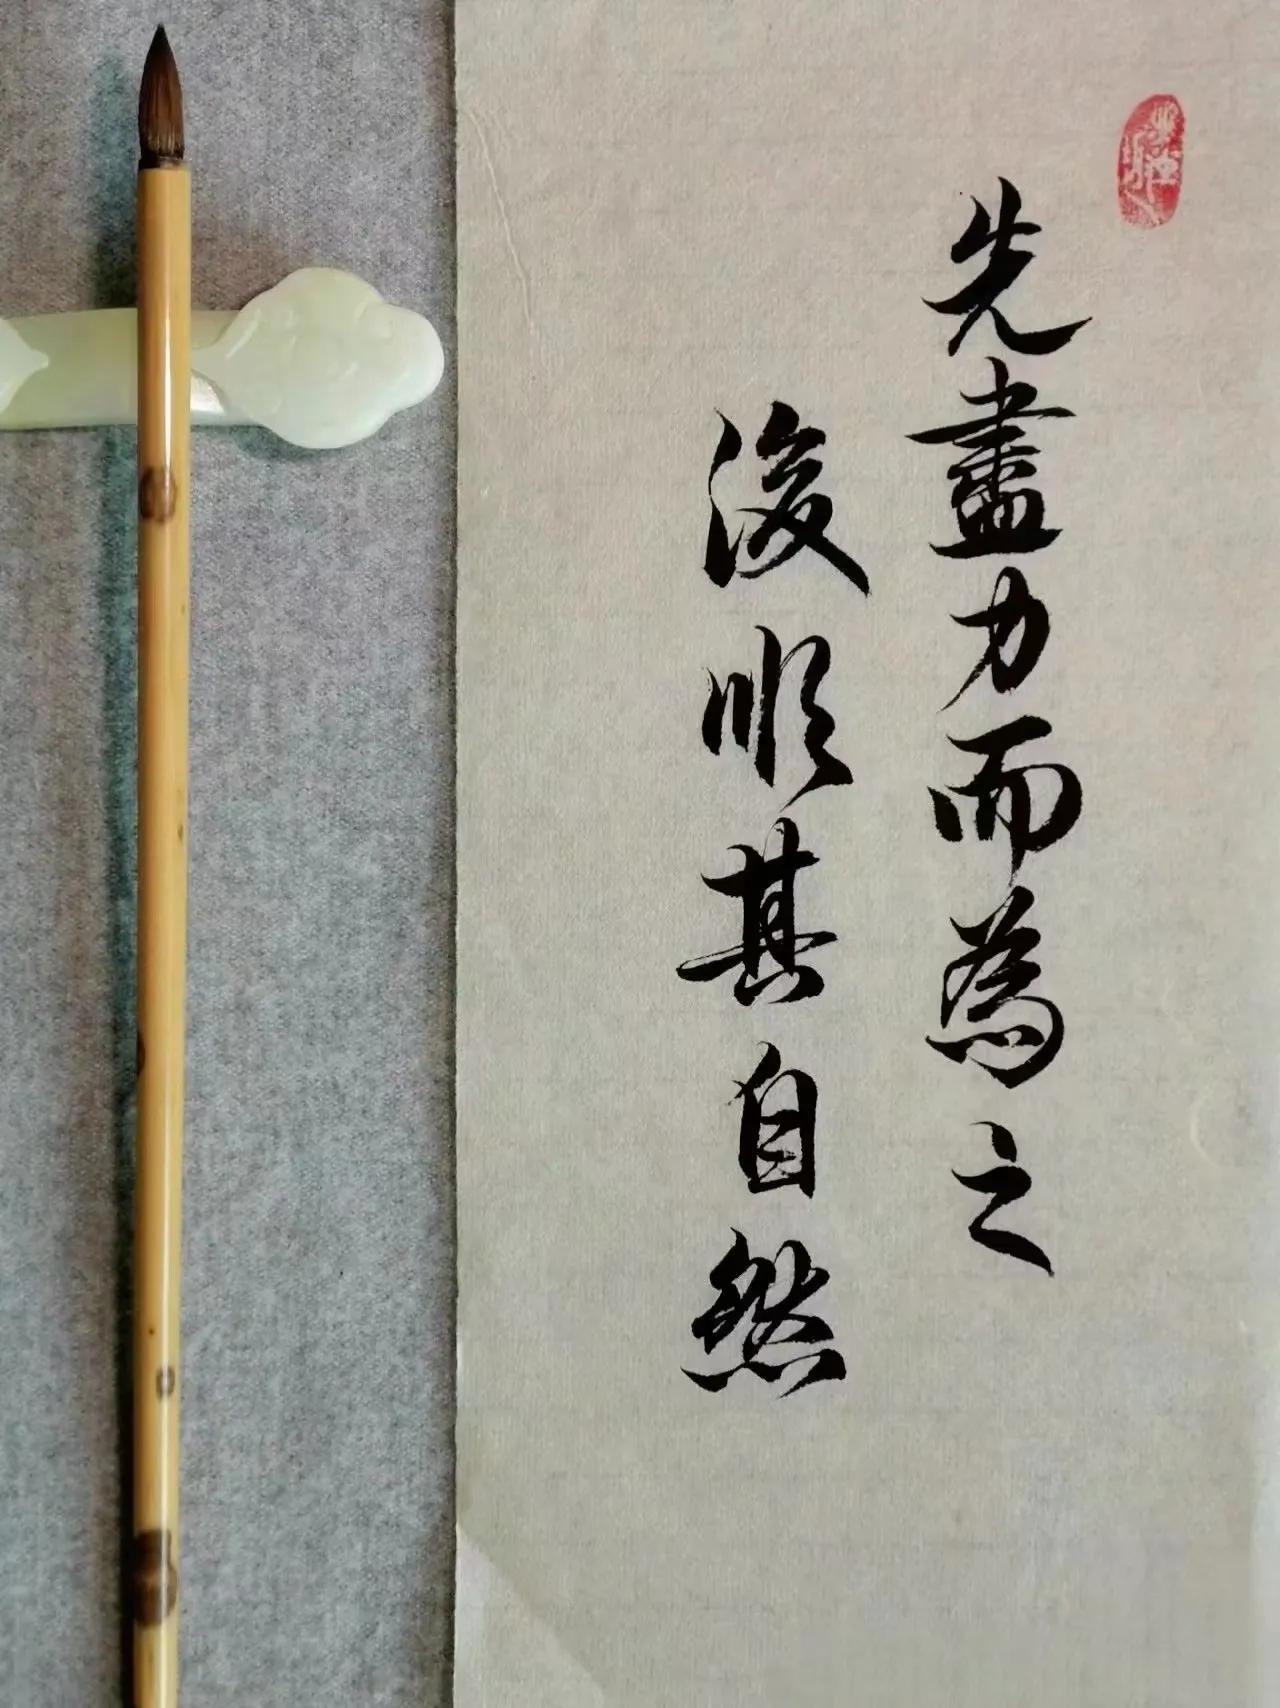 先盡力而為之
後順其自然